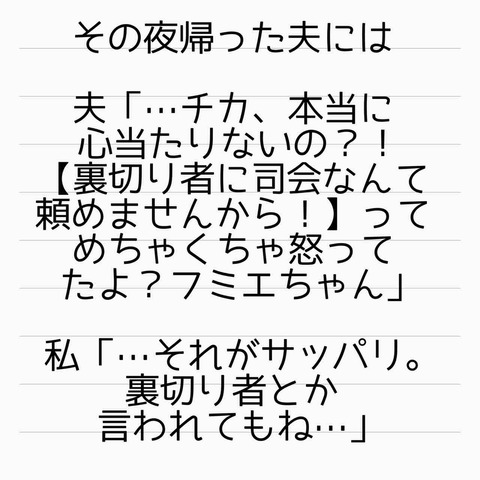 その夜帰った夫には
夫「…チカ、本当に
心当たりないの？！
【裏切り者に司会なんて
頼めませんから！】って
めちゃくちゃ怒って
たよ？フミエちゃん」
私「…それがサッパリ。
裏切り者とか
言われてもね…」